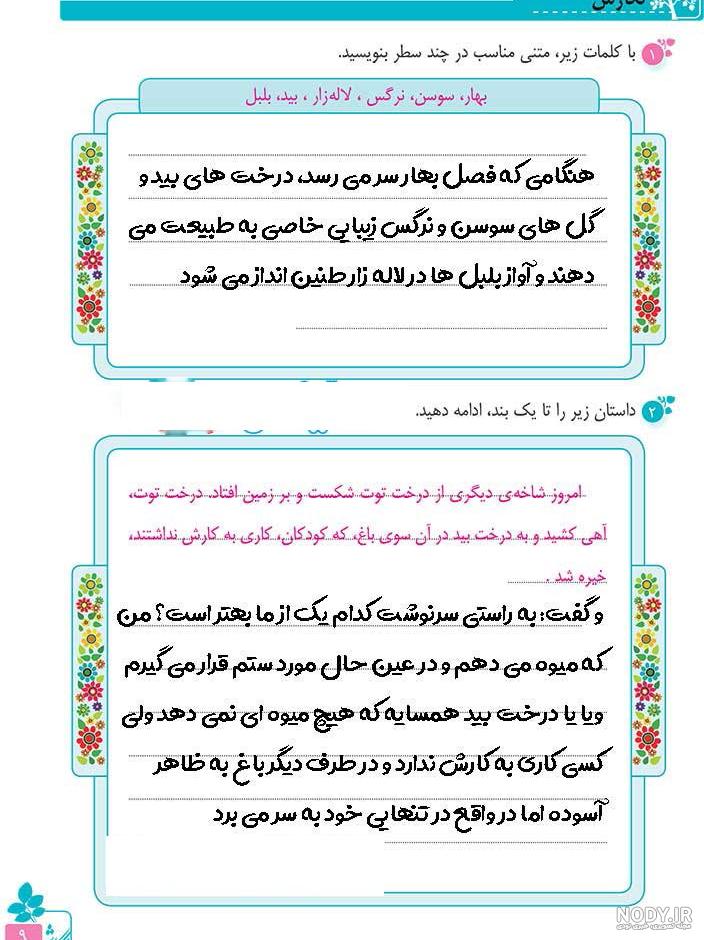 نگارش
۱ با کلمات زیر، متنی مناسب در چند سطر بنویسید.
بهار، سوسن، نرگس ، لاله‌زار ، بید، بلبل
هنگامی که فصل بهار سر می رسد، درخت های بید و
گل های سوسن و نرگس زیبایی خاصی به طبیعت می
دهند و آواز بلبل ها در لاله زار طنین انداز می شود
۲ داستان زیر را تا یک بند، ادامه دهید.
امروز شاخه‌ی دیگری از درخت توت شکست و بر زمین افتاد. درخت توت،
آهی کشید و به درخت بید در آن سوی باغ، که کودکان، کاری به کارش نداشتند،
خیره شد .
و گفت: به راستی سرنوشت کدام یک از ما بهتر است؟ من
که میوه می دهم و در عین حال مورد ستم قرار می گیرم
ویا یا درخت بید همسایه که هیچ میوه ای نمی دهد ولی
کسی کاری به کارش ندارد و در طرف دیگر باغ به ظاهر
آسوده اما در واقع در تنهایی خود به سر می برد
۹
NODY.IR